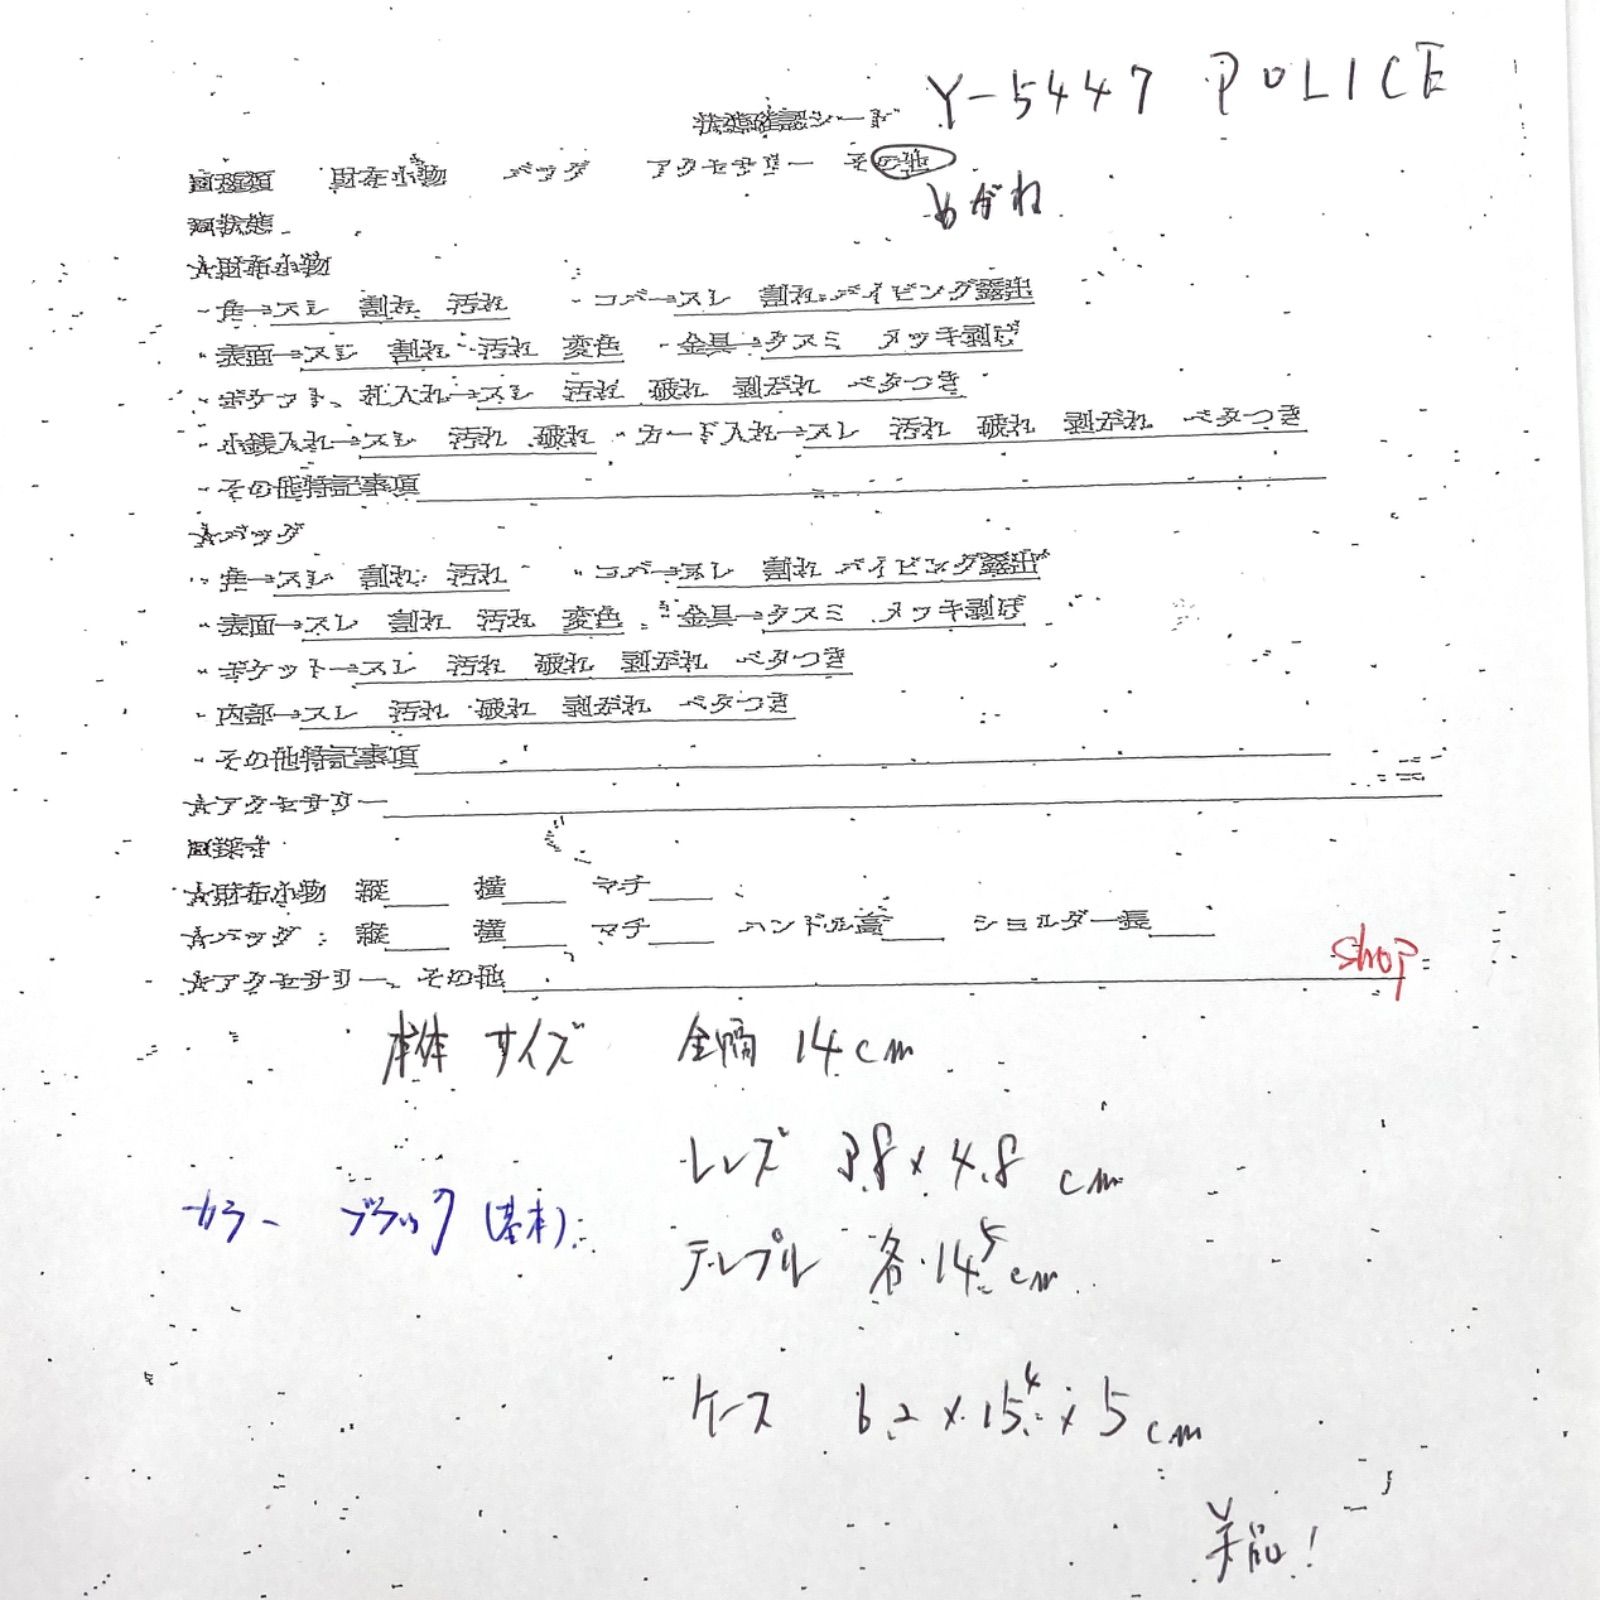 Y-5447 POLICE
状態確認シート
□種類 財布小物 バッグ アクセサリー その他
めがね
□状態
☆財布小物
・角→スレ 割れ 汚れ ・コバ→スレ 割れ パイピング露出
・表面→スレ 割れ 汚れ 変色 ・金具→クスミ メッキ剥げ
・ポケット、札入れ→スレ 汚れ 破れ 剥がれ ベタつき
・小銭入れ→スレ 汚れ 破れ ・カード入れ→スレ 汚れ 破れ 剥がれ ベタつき
・その他特記事項
☆バッグ
・角→スレ 割れ 汚れ ・コバ→スレ 割れ パイピング露出
・表面→スレ 割れ 汚れ 変色 ・金具→クスミ メッキ剥げ
・ポケット→スレ 汚れ 破れ 剥がれ ベタつき
・内部→スレ 汚れ 破れ 剥がれ ベタつき
・その他特記事項
☆アクセサリー
□採寸
☆財布小物 縦 横 マチ
☆バッグ : 縦 横 マチ ハンドル高 ショルダー長
shop
☆アクセサリー、その他
本体サイズ 全幅 14cm
レンズ 3.8×4.8cm
カラー ブラック(基本)
テンプル 各14.5cm
ケース 6.2×15.4×5cm
美品!